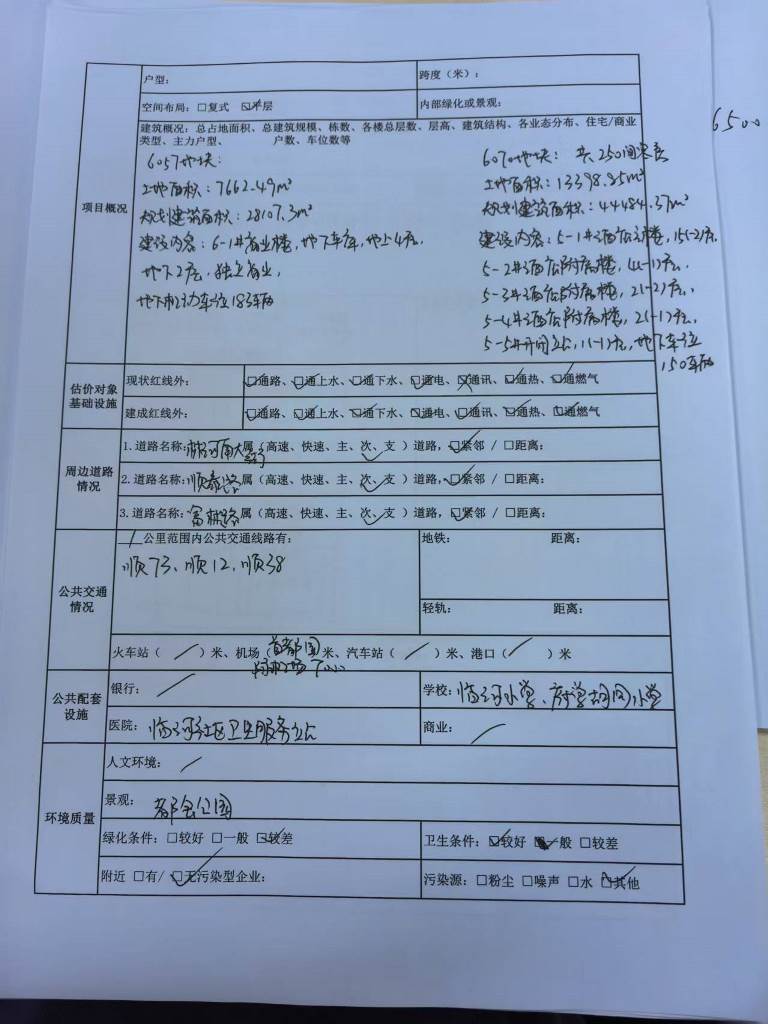 6500
户型：
跨度（米）：
空间布局：□复式 ☑平层
内部绿化或景观：
项目概况
建筑概况：总占地面积、总建筑规模、栋数、各楼总层数、层高、建筑结构、各业态分布、住宅/商业
类型、主力户型、 户数、车位数等
6057地块：
土地面积：7662.49m²
规划建筑面积：28107.3m²
建设内容：6-1#商业楼，地下车库，地上4层，
地下2层，独立商业，
地下机动车位183辆
6070地块： 共250间客房
土地面积：13398.85m²
规划建筑面积：44484.37m²
建设内容：5-1#酒店主楼，15(-2)层，
5-2#酒店附属楼，4(-1)层，
5-3#酒店附属楼，2(-2)层，
5-4#酒店附属楼，2(-1)层，
5-5#开闭站，1(-1)层，地下车位
150辆
估价对象
基础设施
现状红线外：
☑通路、☑通上水、☑通下水、☑通电、☑通讯、☑通热、☑通燃气
建成红线外：
☑通路、☑通上水、☑通下水、☑通电、☑通讯、☑通热、☑通燃气
周边道路
情况
1.道路名称：属（高速、快速、主、次、支）道路，☑紧邻 / □距离：
2.道路名称：顺泰路属（高速、快速、主、次、支）道路，☑紧邻 / □距离：
3.道路名称：属（高速、快速、主、次、支）道路，☑紧邻 / □距离：
公共交通
情况
1公里范围内公共交通线路有：
顺73、顺12、顺38
地铁： 距离：
轻轨： 距离：
火车站（ / ）米、机场（首都国际机场 7000）米、汽车站（ / ）米、港口（ / ）米
公共配套
设施
银行： /
学校：临河小学、府学胡同小学
医院：临河社区卫生服务站
商业： /
环境质量
人文环境： /
景观： 都会公园
绿化条件：□较好 □一般 ☑较差
卫生条件：☑较好 ■一般 □较差
附近 □有/ ☑无污染型企业：
污染源：□粉尘 □噪声 □水 ☑其他